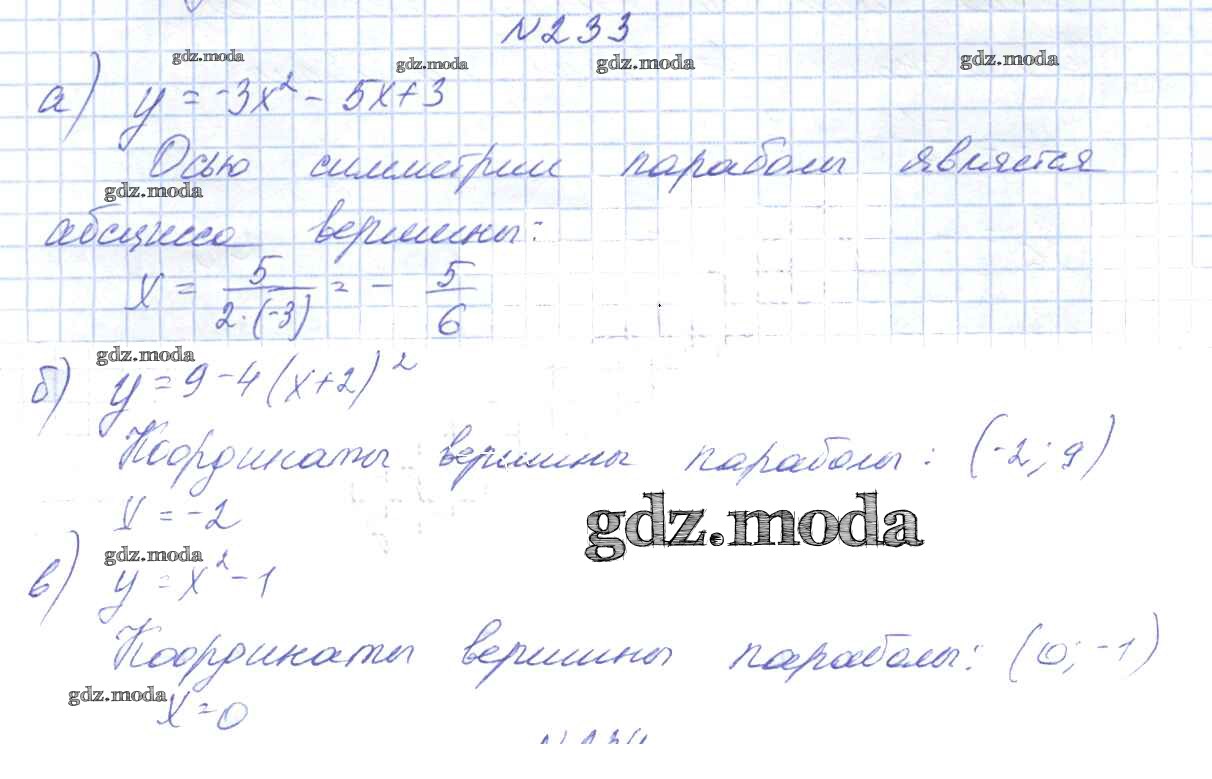 №233
gdz.moda gdz.moda gdz.moda gdz.moda
а) y = -3x² - 5x + 3
Осью симметрии параболы является
gdz.moda
абсцисса вершины:
x = 5/(2·(-3)) = - 5/6
gdz.moda
б) y = 9 - 4(x+2)²
Координаты вершины параболы: (-2; 9)
x = -2
gdz.moda
gdz.moda
в) y = x² - 1
Координаты вершины параболы: (0; -1)
gdz.moda
x = 0